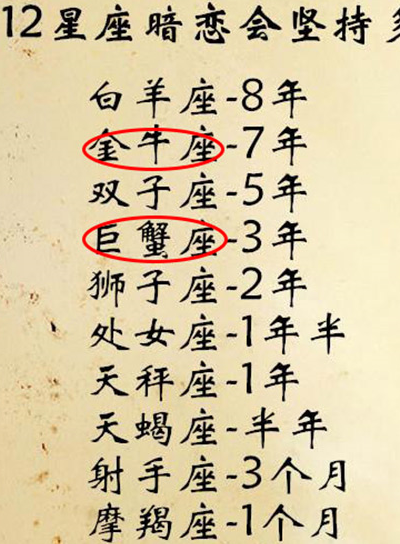 12星座暗恋会坚持
白羊座-8年
金牛座-7年
双子座-5年
巨蟹座-3年
狮子座-2年
处女座-1年半
天秤座-1年
天蝎座-半年
射手座-3个月
摩羯座-1个月